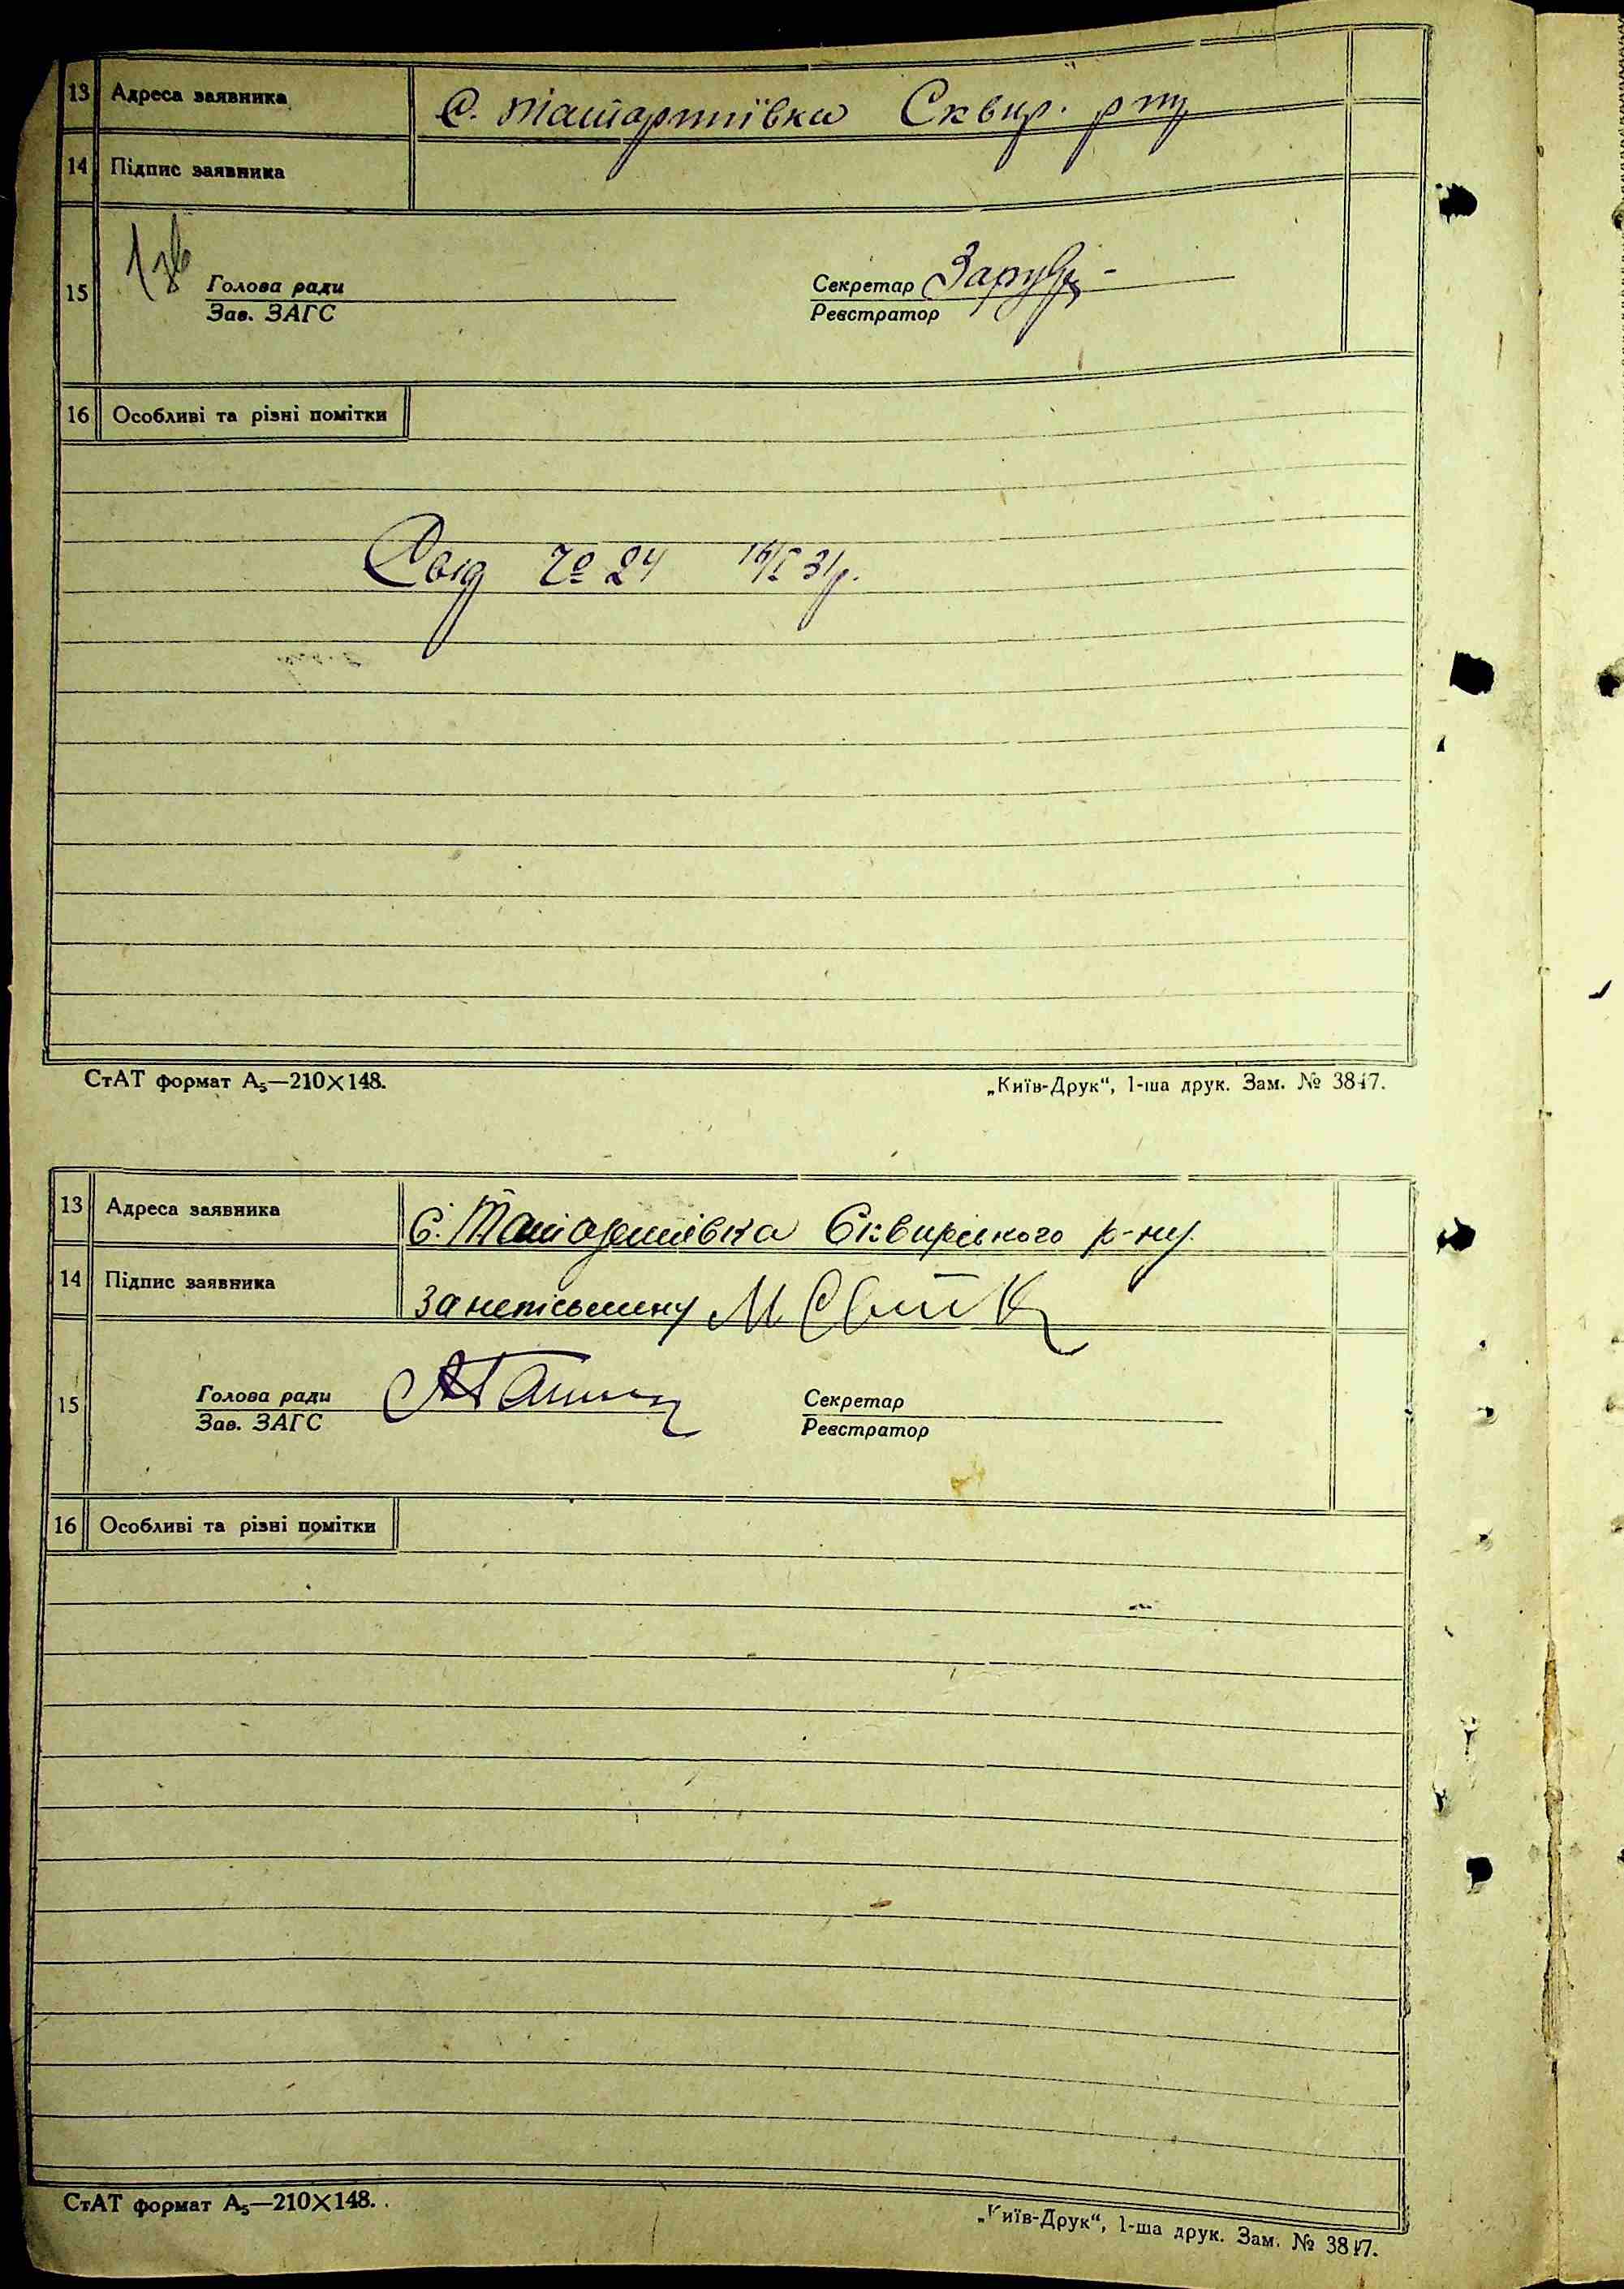 13 Адреса заявника С. Татариновка Сквир. р ну
14 Підпис заявника
15 Голова ради Секретар
Зав. ЗАГС Реєстратор
16 Особливі та різні помітки
Свід № 24 16/I 31р.
СтАТ формат А₅—210×148. „Київ-Друк“, 1-ша друк. Зам. № 3847.
13 Адреса заявника С. Сквирського р-ну.
14 Підпис заявника За неписьменну М
15 Голова ради Секретар
Зав. ЗАГС Реєстратор
16 Особливі та різні помітки
СтАТ формат А₅—210×148. „Київ-Друк“, 1-ша друк. Зам. № 3847.